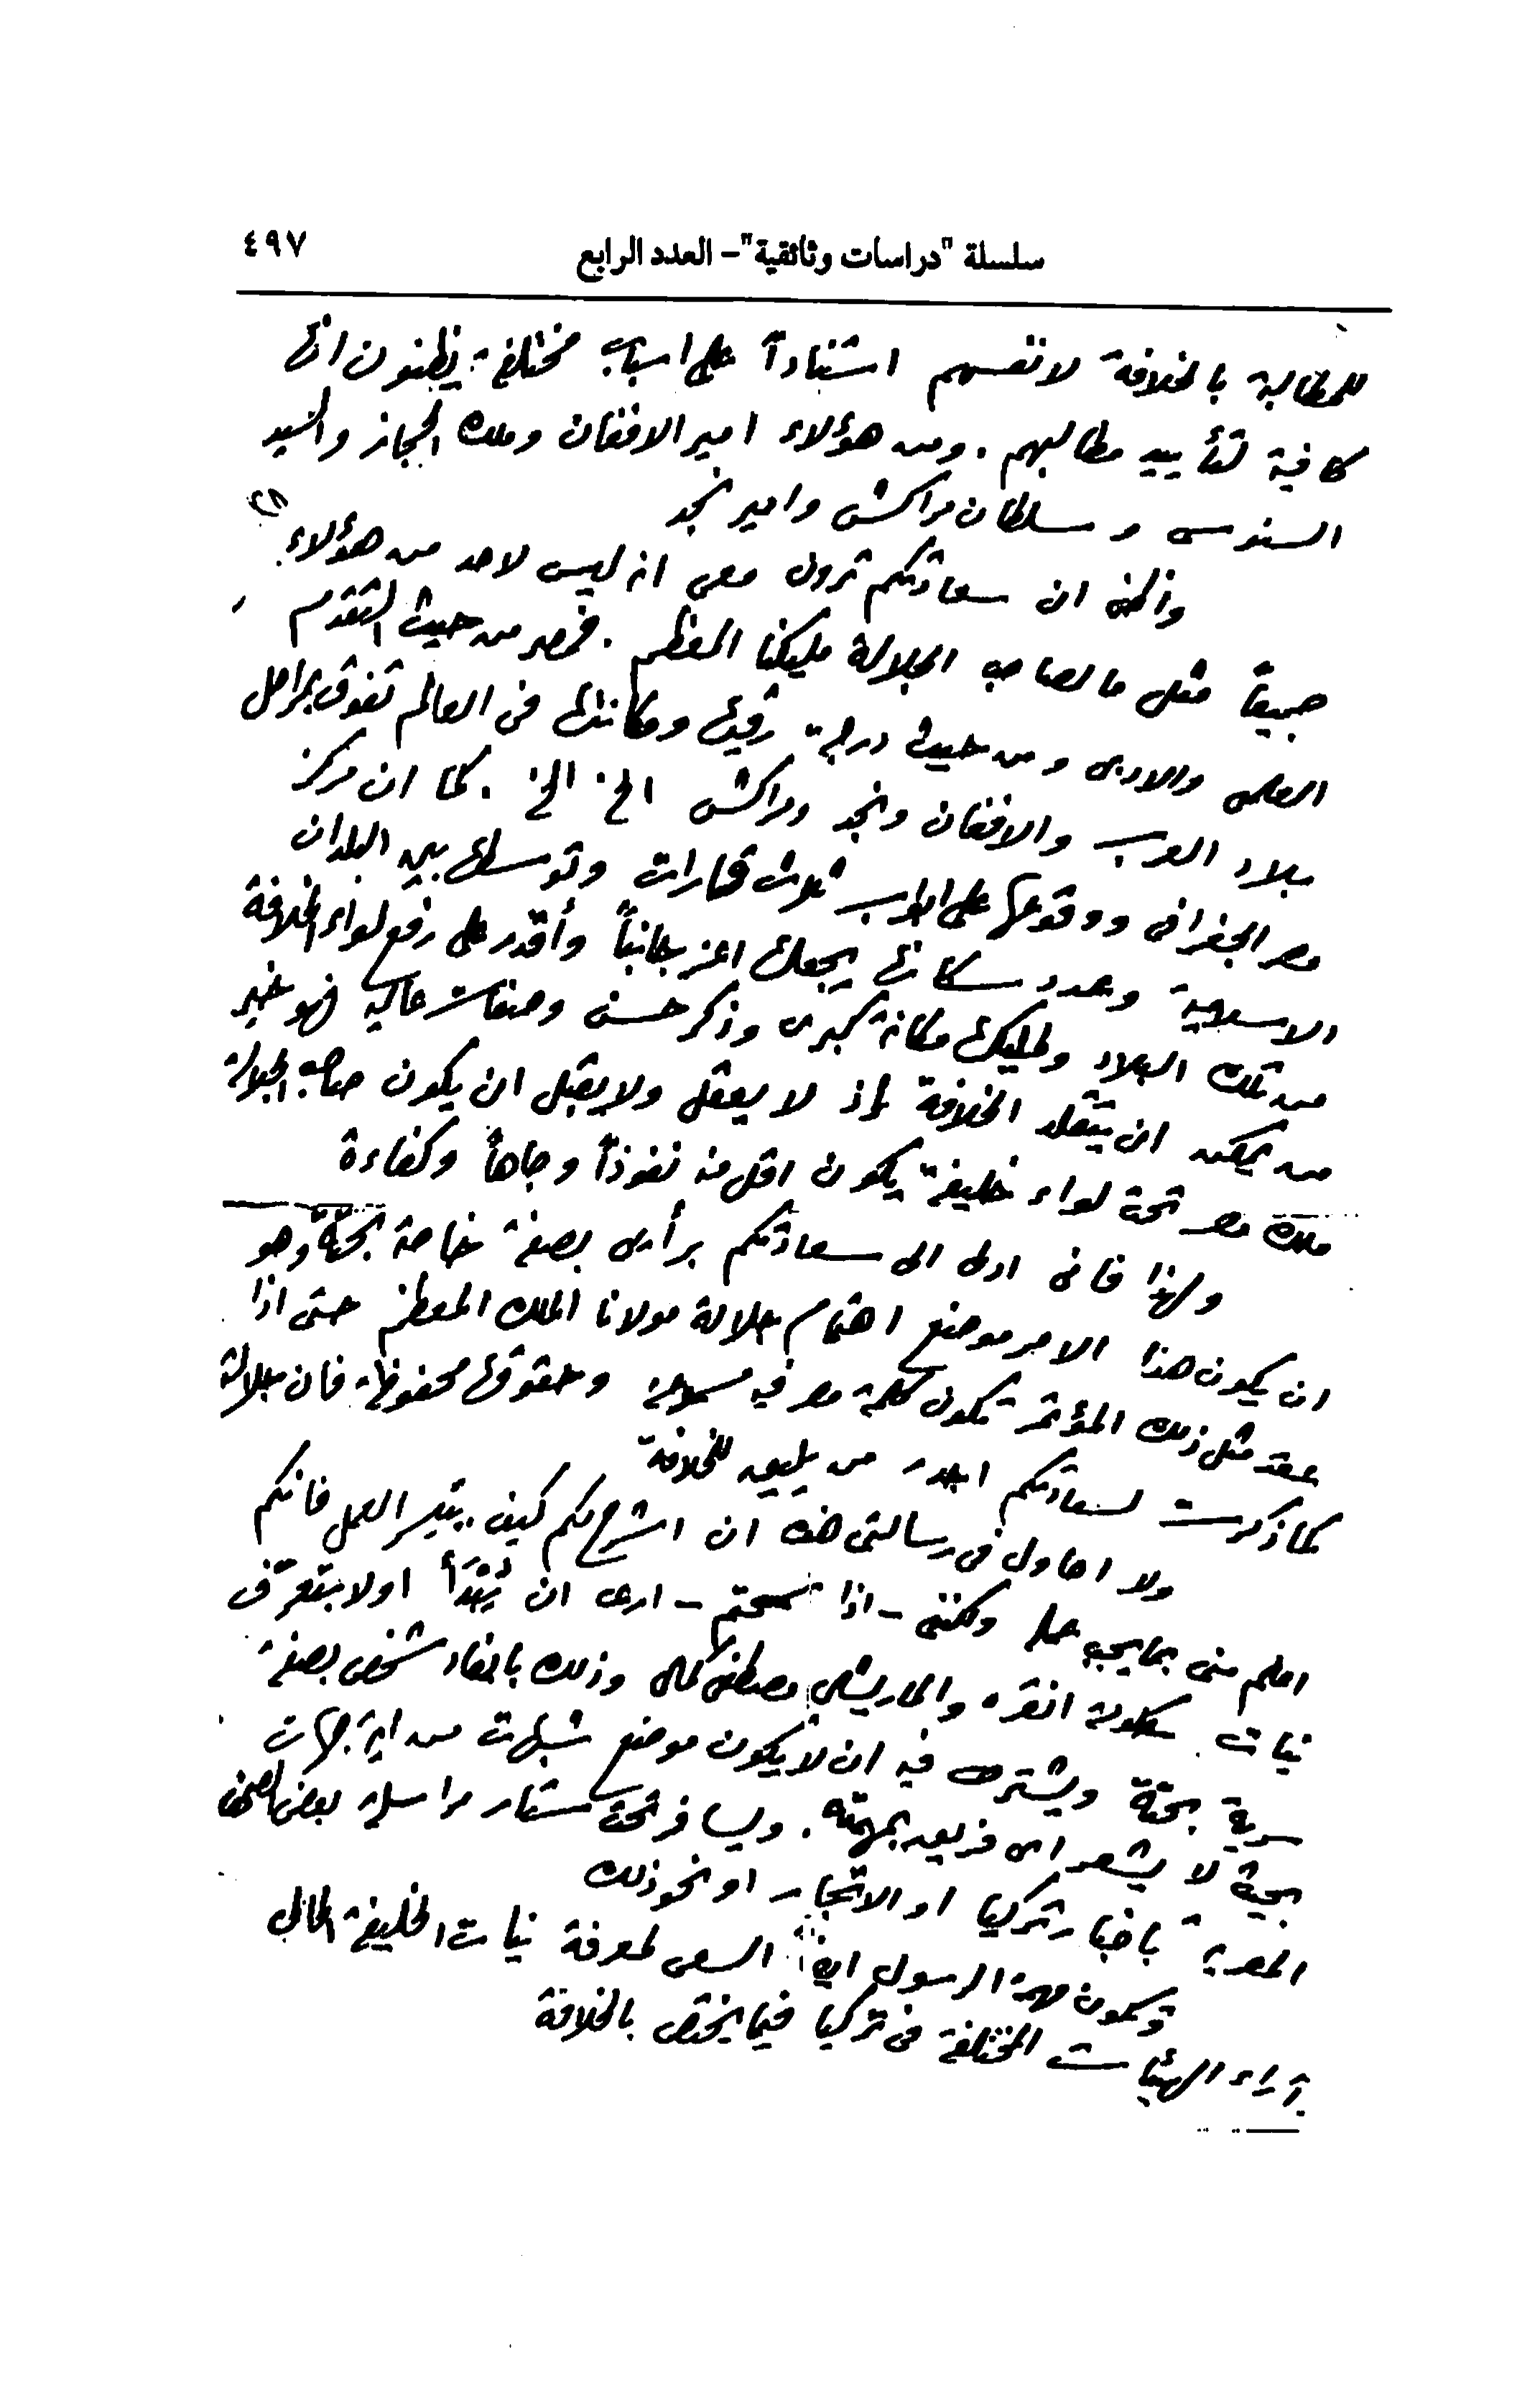 سلسلة "دراسات وثائقية" – العدد الرابع
٤٩٧
للمطالبة بالخلافة لانفسهم استناداً على اسباب مختلفة يظنون انها
كافية لتأييد مطالبهم . ومن هؤلاء امير الافغان وملك الحجاز والسيد
السنوسى وسلطان مراكش وامير نجد
واظن ان سعادتكم ترون معى انه ليس لاحد من هؤلاء
جميعاً مثل ما لصاحب الجلالة مليكنا المعظم . فمصر من حيث التقدم
العلمى والادبى ومن حيث درجة رقيها ومكانتها فى العالم تفوق بمراحل
بلاد العرب والافغان ونجد ومراكش الخ الخ . كما ان مركز
مصر الجغرافى ووقوعها على ابواب ثلاث قارات وتوسطها بين البلدان
الاسلامية وعدد سكانها يجعلها اعز جانباً وأقدر على رفع لواء الخلافة
من تلك البلاد ولمليكها مكانة كبرى وذكر حسن وصفات عالية فهو خير
من يمكن ان يتقلد الخلافة اذ لا يعقل ولا يقبل ان يكون صاحب الجلالة
ملك مصر تحت لواء خليفة يكون اقل منه نفوذاً وجاهاً وكفاءة
ولهذا فانى ادلى الى سعادتكم برأيى بصفة خاصة بحتة وهو
ان يكون هذا الامر موضع اهتمام جلالة مولانا الملك المعظم حتى اذا
عقد مثل ذلك المؤتمر تكون كلمة مصر فيه مسموعة وحقوقها محفوظة فان جلالته
كما ذكرت لسعادتكم اجدر من يليق للخلافة
ولا احاول فى رسالتى هذه ان اشرح لكم كيف يتيسر العمل فانكم
اعلم منى بما يجب عمله ولكننى – اذا سمحتم – ارى ان يُبْتَدَأ اولا بتعرّف
نيات حكومة انقره والماريشال مصطفى كمال وذلك بايفاد شخص بصفة
سرية بحتة ويشترط فيه ان لا يكون موضع شبهات من اية جهات
بحيث لا يشعر اى فريق بمهمته . ويسافر تحت ستار مراسلة بعض الصحف
المصرية باخبار تركيا او الاتجار او نحو ذلك
وتكون مهمة الرسول ايضاً السعى لمعرفة نيات الخليفة الحالى
آراء الهيئات المختلفة فى تركيا فيما يختص بالخلافة